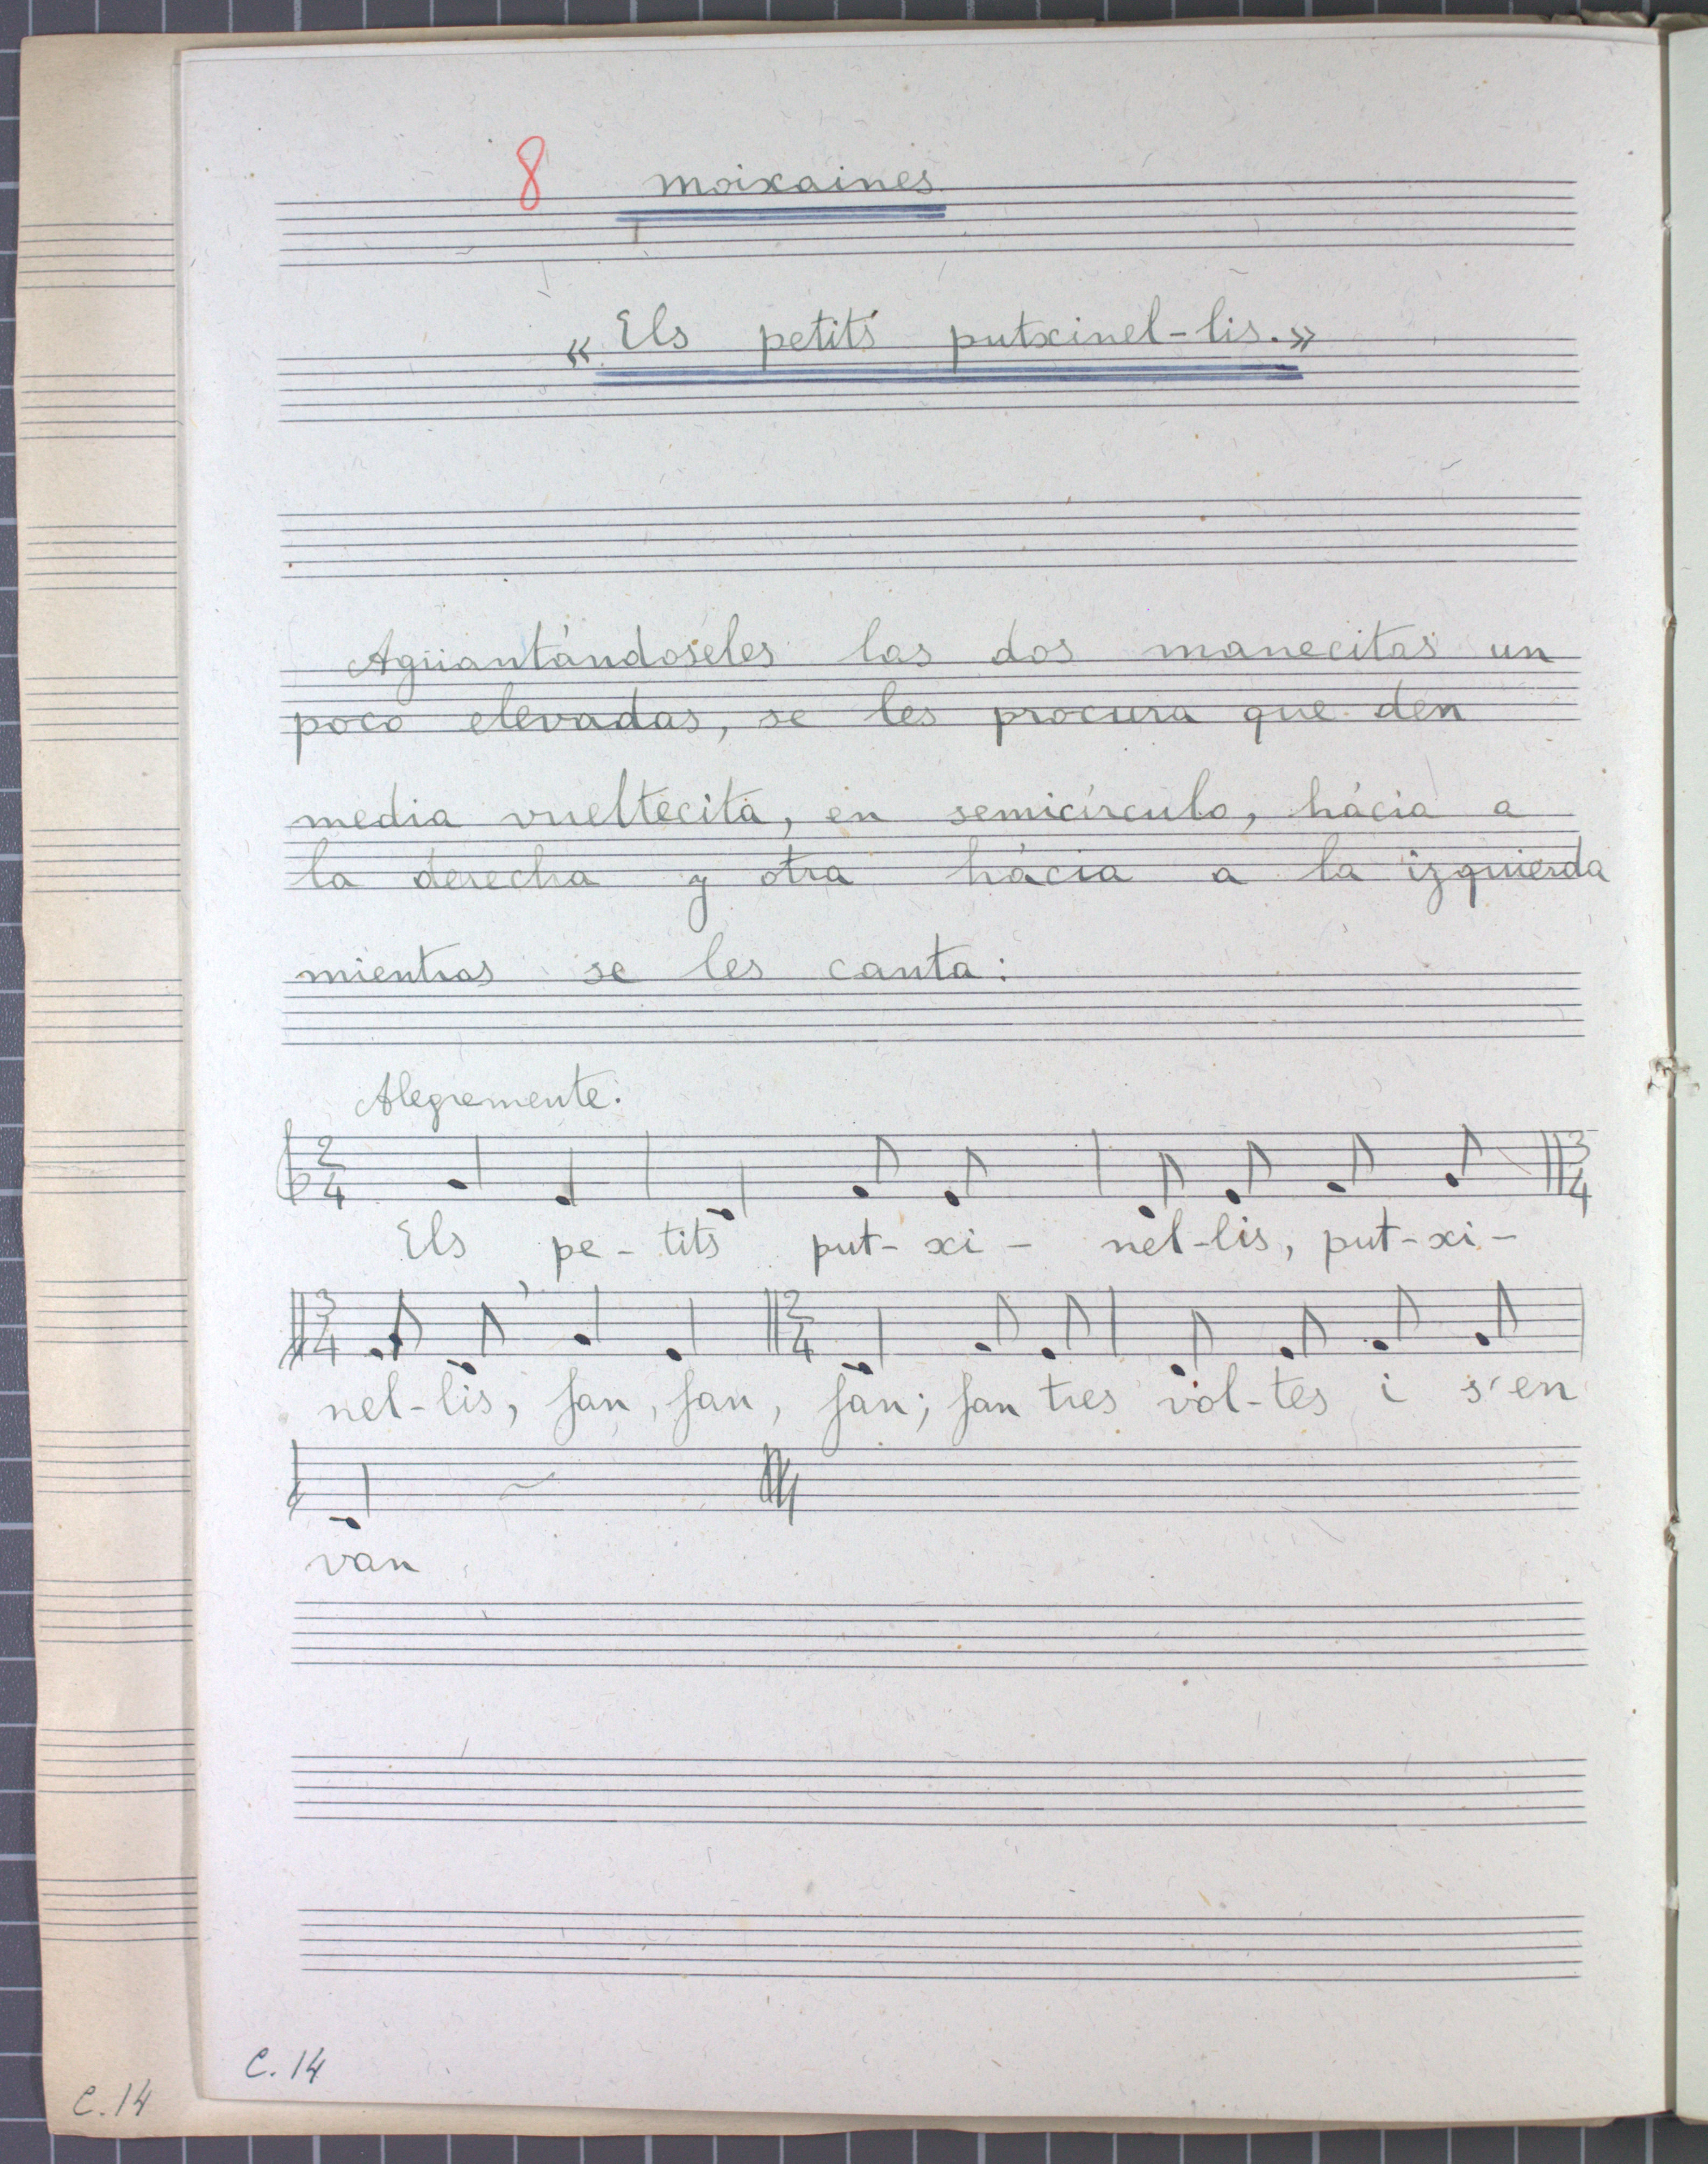 8 moixaines
«Els petits putxinel-lis.»
Agüantándoseles las dos manecitas un
poco elevadas, se les procura que den
media vueltecita, en semicírculo, hácia a
la derecha y otra hácia a la izquierda
mientras se les canta:
Alegremente:
2/4 3/4
Els pe-tits put-xi-nel-lis, put-xi-
3/4 2/4
nel-lis, fan, fan, fan; fan tres vol-tes i s'en
van
C.14
C.14